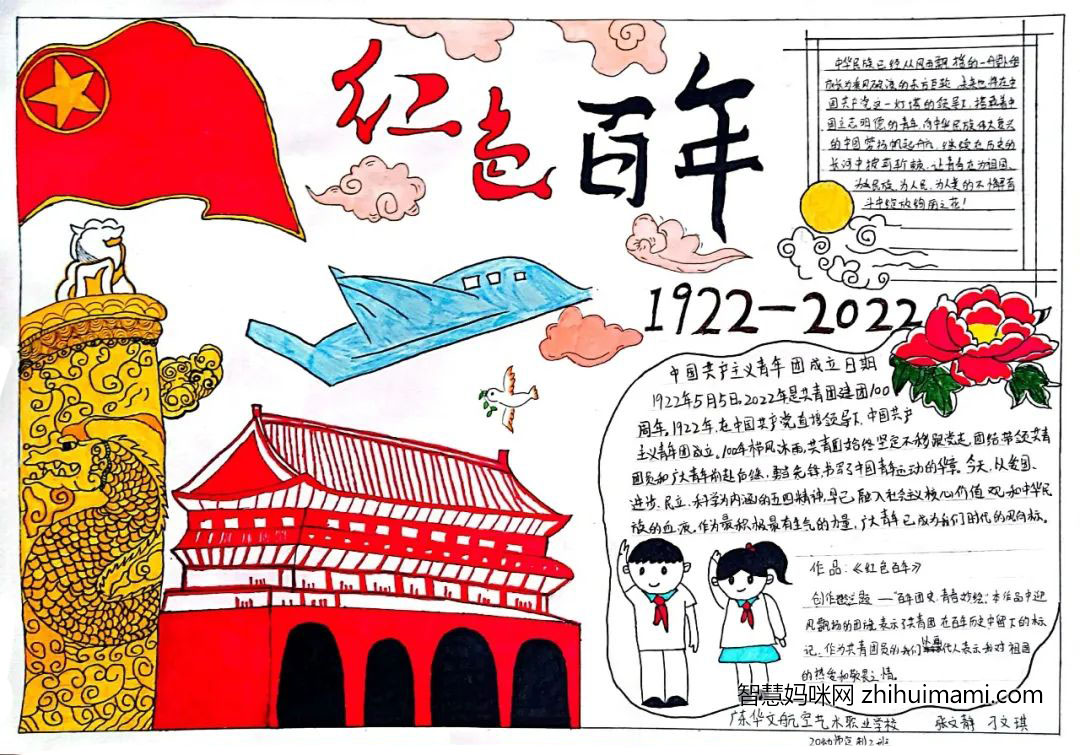 红色百年
1922-2022
中华民族已经从风雨飘摇的一叶小舟
成长为乘风破浪的东方巨轮,未来也将在中
国共产党这一灯塔的领导下,搭载着中
国立志明德的青年,向中华民族伟大复兴
的中国梦扬帆起航,继续在历史的
长河中披荆斩棘,让青春在为祖国、
为民族、为人民、为人类的不懈奋
斗中绽放绚丽之花!
中国共产主义青年团成立日期
1922年5月5日,2022年是共青团建团100
周年,1922年,在中国共产党直接领导下,中国共产
主义青年团成立。100年栉风沐雨,共青团始终坚定不移跟党走,团结带领共青
团员和广大青年前赴后继、勇当先锋,书写了中国青年运动的华章。今天,从爱国、
进步、民主、科学为内涵的五四精神,早已融入社会主义核心价值观和中华民
族的血液。作为最积极最有生气的力量,广大青年已成为我们时代的风向标。
作品:《红色百年》
创作主题——"百年团史,青春妙绘:本作品中迎
风飘扬的团旗,表示了共青团在百年历史中留下的标
记,作为共青团员的我们代人表示我对祖国
的热爱和敬畏之情。
智慧妈咪网 zhihuimami.com
广东华文航空艺术职业学校 张文静 刁文琪